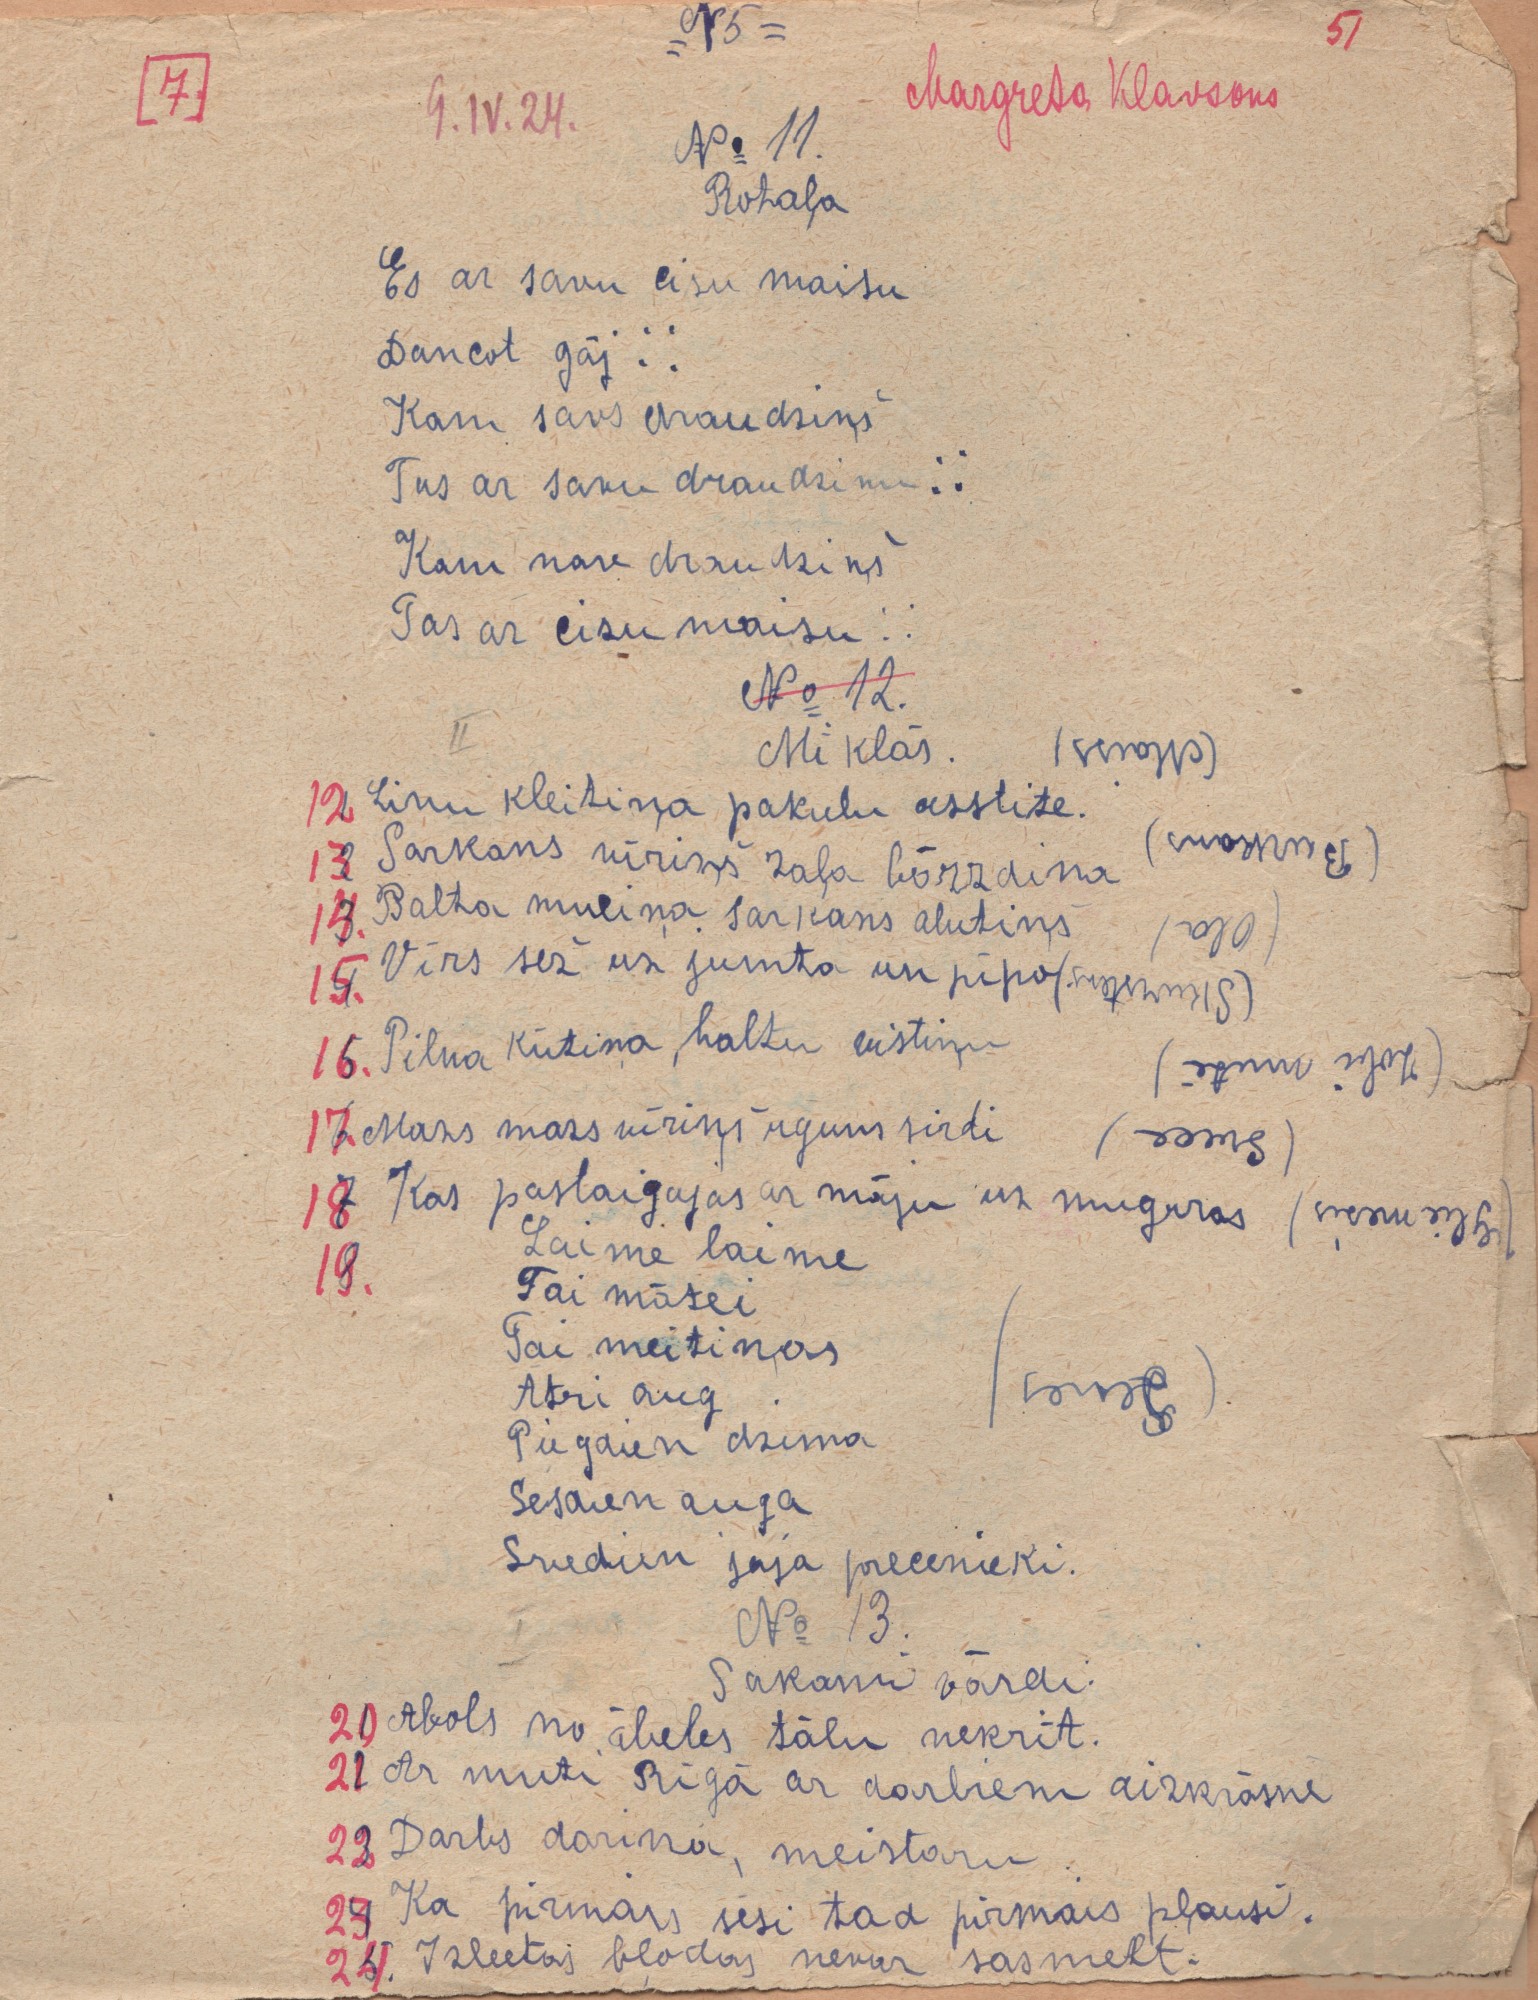 = N5 =
51
[7.]
9.IV.24.
Margreta Klavsons
№ 11.
Rotaļa
Es ar savu cisu maisu
Dancot gāj :.:
Kam savs draudziņš
Tas ar savu draudzinu :.:
Kam nave draudziņš
Tas ar cisu maisu :.:
№ 12.
II
Miklās. (Maiss)
12 Linu kleitiņa pakulu asstite.
13 Sarkans vīriņš zaļa bārzdina (Burkans)
14. Balta muciņa sarkans alutiņš (Ola)
15. Vīrs sež uz jumta un pīpo (Skurstens)
16. Pilna kūtiņa baltu vistiņu (Zobi mutē)
17 Mazs mazs vīriņš uguns sirdi (Svece)
18 Kas pastaigajas ar māju uz muguras (Gliemezis)
19. Laime laime
Tai mātei
Tai meitiņas
Atri aug
Piegdien dzima
Sesdien auga
Svedien jāja precenieki.
№ 13.
Sakami vārdi.
20 Abols no ābeles tālu nekrīt.
21 Ar muti Rīgā ar darbiem aizkrāsnē
22 Darbs darina, meistaru.
23 Ka pirmais sēsi tad pirmais plausi.
24. Izleetas bļodas nevar sasmelt.